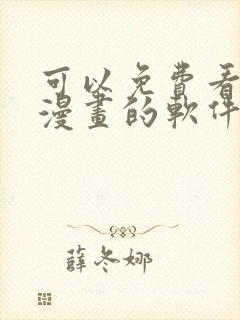 可以免費看
漫畫的軟件
薛冬娜